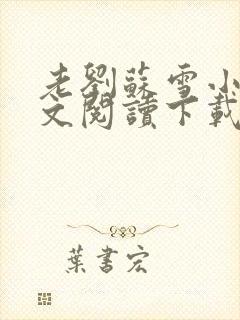 老劉蘇雪小
文閱讀下載
葉書宏